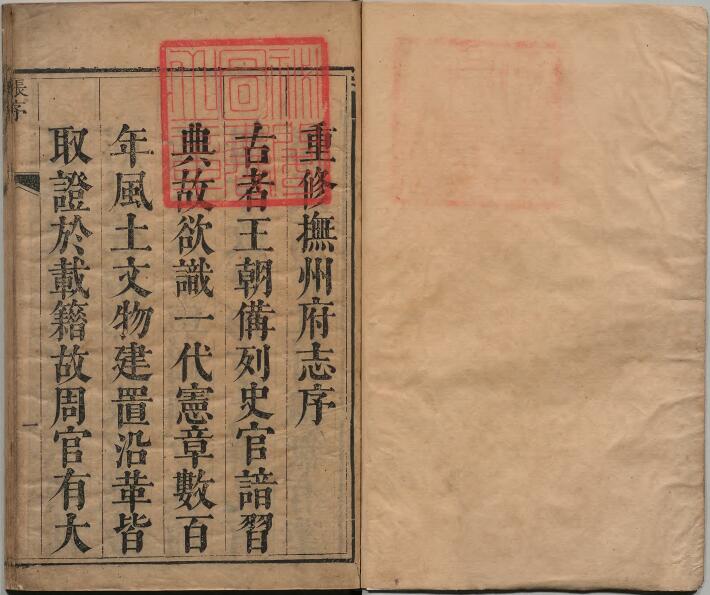 重修撫州府志序
古者王朝備列史官諳習
典故欲識一代憲章數百
年風土文物建置沿革皆
取證於載籍故周官有大
張序
一